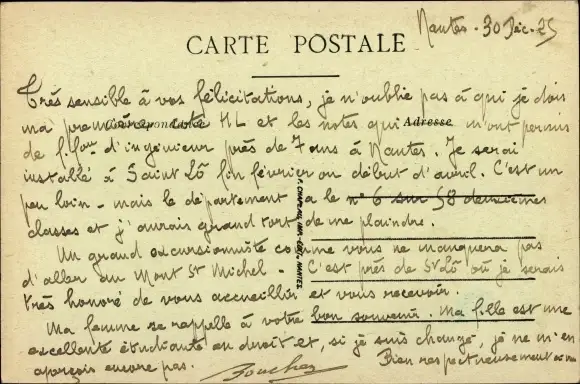 Nantes - 30 Déc. 25
CARTE POSTALE
Très sensible à vos félicitations, je n'oublie pas à qui je dois
Correspondance
Adresse
ma première cote HL et les notes qui m'ont permis
de f. fons d'ingénieur près de 7 ans à Nantes. Je serai
installé à Saint Lô fin février ou début d'avril. C'est un
peu loin - mais le département a le n° 6 sur 58 deuxièmes
classes et j'aurais grand tort de me plaindre.
Un grand excursionniste comme vous ne manquera pas
d'aller au Mont St Michel - C'est près de St Lô où je serais
très honoré de vous accueillir et vous recevoir.
Ma femme se rappelle à votre bon souvenir. Ma fille est une
excellente étudiante en droit et, si je suis changé, je ne m'en
aperçois encore pas.
Bien respectueusement à vous